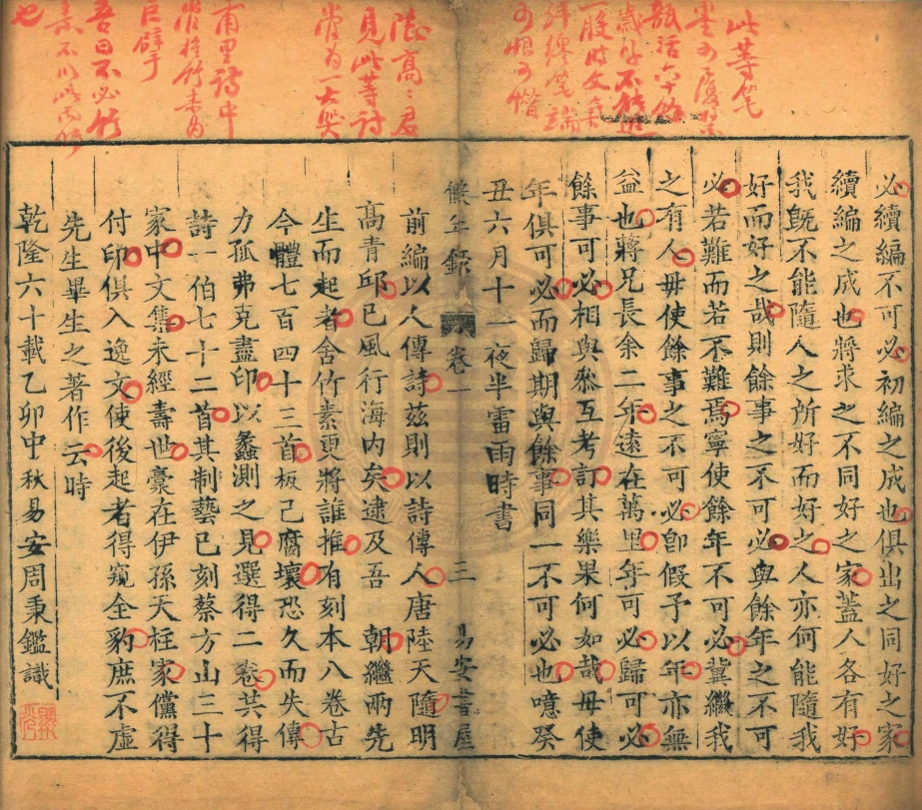 此等筆
墨可覆
瓿活六十餘
歲
股時文氣
絆纏筆端
可恨可憎
必續編不可必初編之成也俱出之同好之家
續編之成也將求之不同好之家蓋人各有好
我旣不能隨人之所好而好之人亦何能隨我
好而好之哉則餘事之不可必與餘年之不可
必若難而若不難焉寧使餘年不可必冀繼我
之有人毋使餘事之不可必卽假予以年亦無
益也蔣兄長余二年遠在萬里年可必歸可必
餘事可必相與叅互考訂其樂果何如哉毋使
年俱可必而歸期與餘事同一不可必也噫癸
丑六月十一夜半雷雨時書
年錄 卷一 三 易安書屋
高二君
見此等詩
當為一大哭
甫里詩中
竹素為
巨擘乎
吾曰不必竹
素不以此
也
前編以人傳詩茲則以詩傳人唐陸天隨明
高青邱已風行海内矣逮及吾 朝繼兩先
生而起者舍竹素更將誰推有刻本八卷古
今體七百四十三首板已腐壞恐久而失傳
力孤弗克盡印以蠡測之見選得二卷共得
詩一伯七十二首其制藝已刻蔡方山三十
家中文集未經壽世豪在伊孫天柱家儻得
付印俱入逸文使後起者得窺全豹庶不虛
先生畢生之著作云時
乾隆六十載乙卯中秋易安周秉鑑識